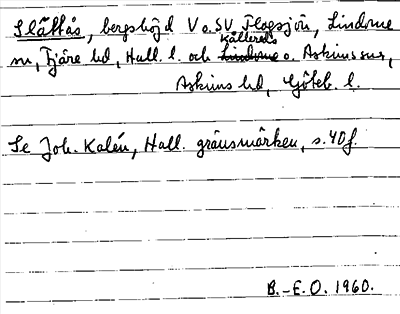 Slåttås, bergshöjd V o. SV Flogsjön, Lindome
Kållereds
sn, Fjäre hd, Hall. l. och Lindome o. Askims snr,
Askims hd, Göteb. l.
Se Joh. Kalén, Hall. gränsmärken, s. 40 f.
B.-E.O. 1960.